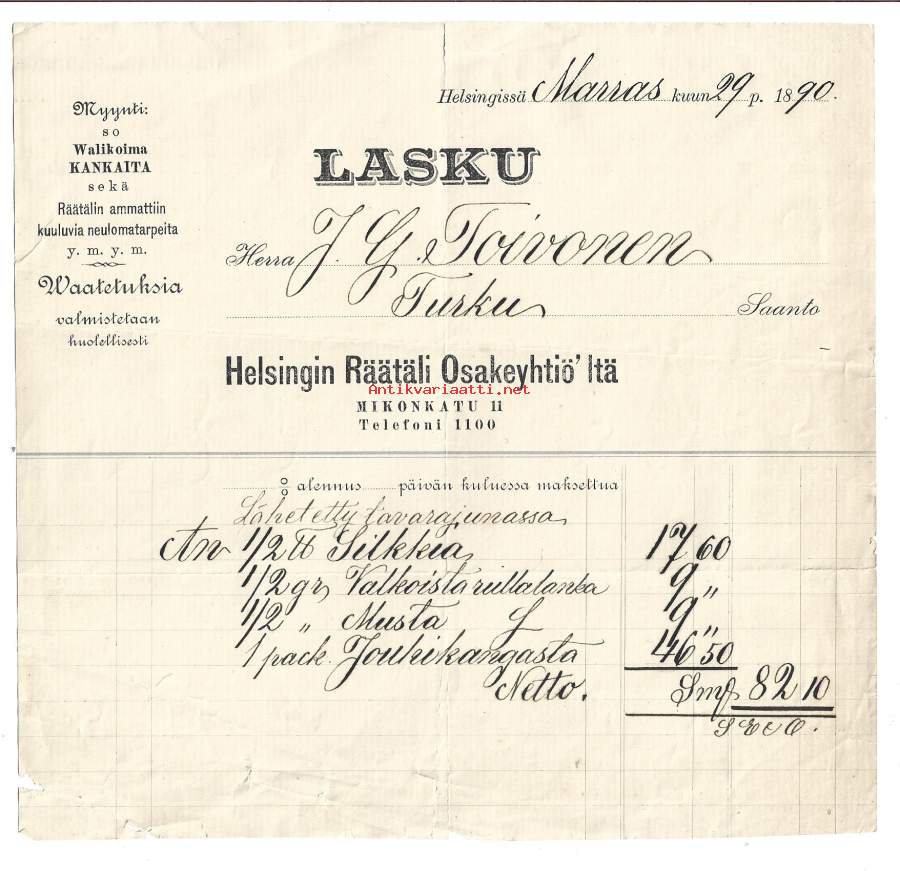 Helsingissä Marras kuun 29 p. 1890.
Myynti:
so
Walikoima
KANKAITA
sekä
Räätälin ammattiin
kuuluvia neulomatarpeita
y. m. y. m.
Waatetuksia
valmistetaan
huolellisesti
LASKU
Herra J. G. Toivonen
Turku Saanto
Helsingin Räätäli Osakeyhtiö'ltä
Antikvariaatti.net
MIKONKATU 11
Telefoni 1100
% alennus päivän kuluessa maksettua
Lähetetty tavarajunassa
An 1/2 ℔ Silkkiä 17 60
1/2 gr Valkoista rullalanka 9 "
1/2 " Musta 9 "
1 pack. Jouhikangasta 46 50
Netto. Smf 82 10
S E e O.